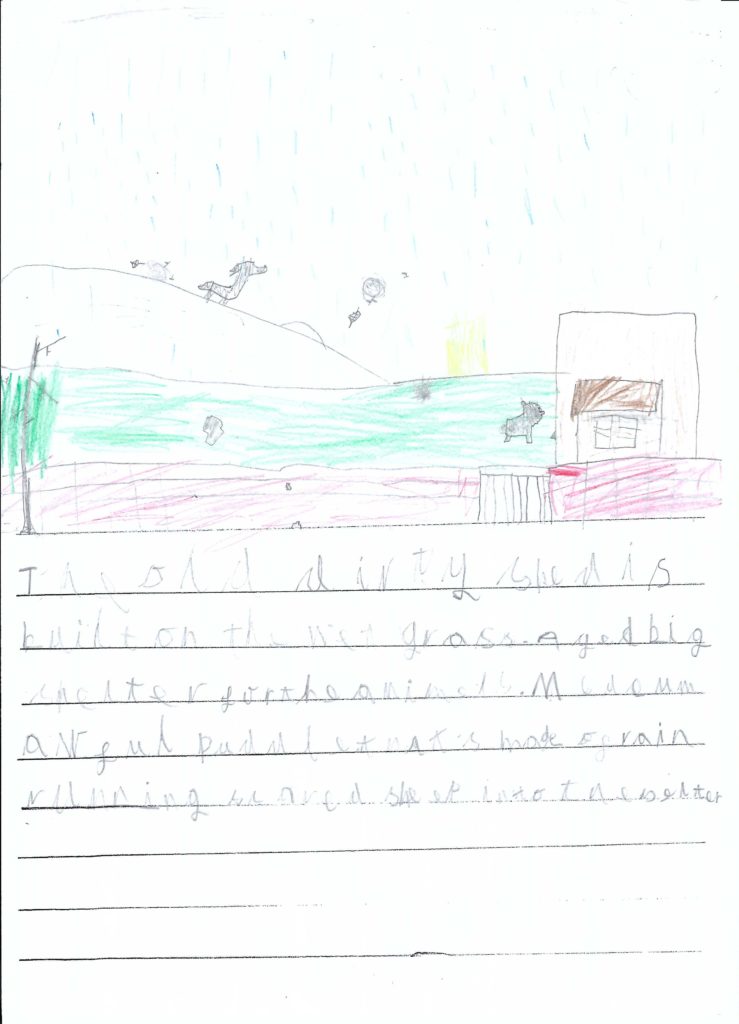 The old dirty shed is
built on the wet grass. Aged big
shelter for the animals. Medeum
awful puddle that is made of rain
running scared sheep into the shelter